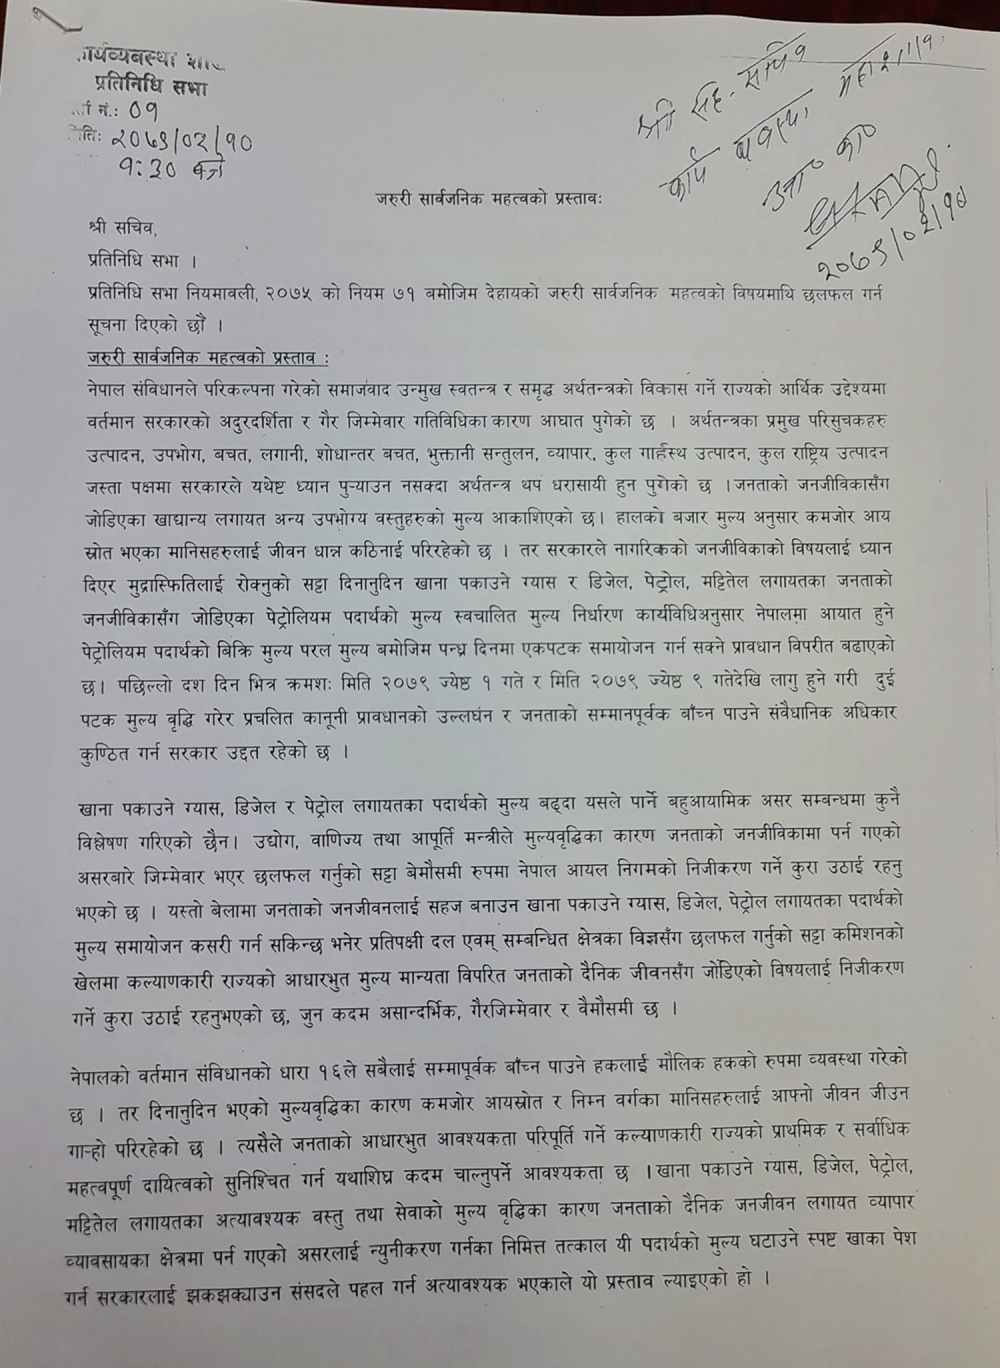 कार्यव्यबस्था शाखा
प्रतिनिधि सभा
र्ता नं.: ०१
मितिः २०७९/०२/१०
१:३० बजे
श्री सह-सचिव
कार्य ब्यवस्था महाशाखा
२०७९/०२/१०
जरुरी सार्वजनिक महत्वको प्रस्तावः
श्री सचिव,
प्रतिनिधि सभा ।
प्रतिनिधि सभा नियमावली, २०७५ को नियम ७१ बमोजिम देहायको जरुरी सार्वजनिक महत्वको विषयमाथि छलफल गर्न
सूचना दिएको छौं ।
जरुरी सार्वजनिक महत्वको प्रस्ताव :
नेपाल संविधानले परिकल्पना गरेको समाजवाद उन्मुख स्वतन्त्र र समृद्ध अर्थतन्त्रको विकास गर्ने राज्यको आर्थिक उद्देश्यमा
वर्तमान सरकारको अदुरदर्शिता र गैर जिम्मेवार गतिविधिका कारण आघात पुगेको छ । अर्थतन्त्रका प्रमुख परिसुचकहरु
उत्पादन, उपभोग, बचत, लगानी, शोधान्तर बचत, भुक्तानी सन्तुलन, व्यापार, कुल गार्हस्थ उत्पादन, कुल राष्ट्रिय उत्पादन
जस्ता पक्षमा सरकारले यथेष्ट ध्यान पुऱ्याउन नसक्दा अर्थतन्त्र थप धरासायी हुन पुगेको छ ।जनताको जनजीविकासँग
जोडिएका खाद्यान्य लगायत अन्य उपभोग्य वस्तुहरुको मुल्य आकाशिएको छ। हालको बजार मुल्य अनुसार कमजोर आय
स्रोत भएका मानिसहरुलाई जीवन धान्न कठिनाई परिरहेको छ । तर सरकारले नागरिकको जनजीविकाको विषयलाई ध्यान
दिएर मुद्रास्फितिलाई रोक्नुको सट्टा दिनानुदिन खाना पकाउने ग्यास र डिजेल, पेट्रोल, मट्टितेल लगायतका जनताको
जनजीविकासँग जोडिएका पेट्रोलियम पदार्थको मुल्य स्वचालित मुल्य निर्धारण कार्यविधिअनुसार नेपालमा आयात हुने
पेट्रोलियम पदार्थको बिक्रि मुल्य परल मुल्य बमोजिम पन्ध्र दिनमा एकपटक समायोजन गर्न सक्ने प्रावधान विपरीत बढाएको
छ। पछिल्लो दश दिन भित्र क्रमशः मिति २०७९ ज्येष्ठ १ गते र मिति २०७९ ज्येष्ठ ९ गतेदेखि लागु हुने गरी दुई
पटक मुल्य वृद्धि गरेर प्रचलित कानूनी प्रावधानको उल्लघंन र जनताको सम्मानपूर्वक बाँच्न पाउने संवैधानिक अधिकार
कुण्ठित गर्न सरकार उद्दत रहेको छ ।
खाना पकाउने ग्यास, डिजेल र पेट्रोल लगायतका पदार्थको मुल्य बढ्दा यसले पार्ने बहुआयामिक असर सम्बन्धमा कुनै
विश्लेषण गरिएको छैन। उद्योग, वाणिज्य तथा आपूर्ति मन्त्रीले मुल्यवृद्धिका कारण जनताको जनजीविकामा पर्न गएको
असरबारे जिम्मेवार भएर छलफल गर्नुको सट्टा बेमौसमी रुपमा नेपाल आयल निगमको निजीकरण गर्ने कुरा उठाई रहनु
भएको छ । यस्तो बेलामा जनताको जनजीवनलाई सहज बनाउन खाना पकाउने ग्यास, डिजेल, पेट्रोल लगायतका पदार्थको
मुल्य समायोजन कसरी गर्न सकिन्छ भनेर प्रतिपक्षी दल एवम् सम्बन्धित क्षेत्रका विज्ञसँग छलफल गर्नुको सट्टा कमिशनको
खेलमा कल्याणकारी राज्यको आधारभुत मुल्य मान्यता विपरित जनताको दैनिक जीवनसँग जोडिएको विषयलाई निजीकरण
गर्ने कुरा उठाई रहनुभएको छ, जुन कदम असान्दर्भिक, गैरजिम्मेवार र वैमौसमी छ ।
नेपालको वर्तमान संविधानको धारा १६ले सबैलाई सम्मापूर्वक बाँच्न पाउने हकलाई मौलिक हकको रुपमा व्यवस्था गरेको
छ । तर दिनानुदिन भएको मुल्यवृद्धिका कारण कमजोर आयस्रोत र निम्न वर्गका मानिसहरुलाई आफ्नो जीवन जीउन
गाऱ्हो परिरहेको छ । त्यसैले जनताको आधारभुत आवश्यकता परिपूर्ति गर्ने कल्याणकारी राज्यको प्राथमिक र सर्वाधिक
महत्वपूर्ण दायित्वको सुनिश्चित गर्न यथाशिघ्र कदम चाल्नुपर्ने आवश्यकता छ ।खाना पकाउने ग्यास, डिजेल, पेट्रोल,
मट्टितेल लगायतका अत्यावश्यक वस्तु तथा सेवाको मुल्य वृद्धिका कारण जनताको दैनिक जनजीवन लगायत व्यापार
व्यावसायका क्षेत्रमा पर्न गएको असरलाई न्युनीकरण गर्नका निमित्त तत्काल यी पदार्थको मुल्य घटाउने स्पष्ट खाका पेश
गर्न सरकारलाई झकझक्याउन संसदले पहल गर्न अत्यावश्यक भएकाले यो प्रस्ताव ल्याइएको हो ।